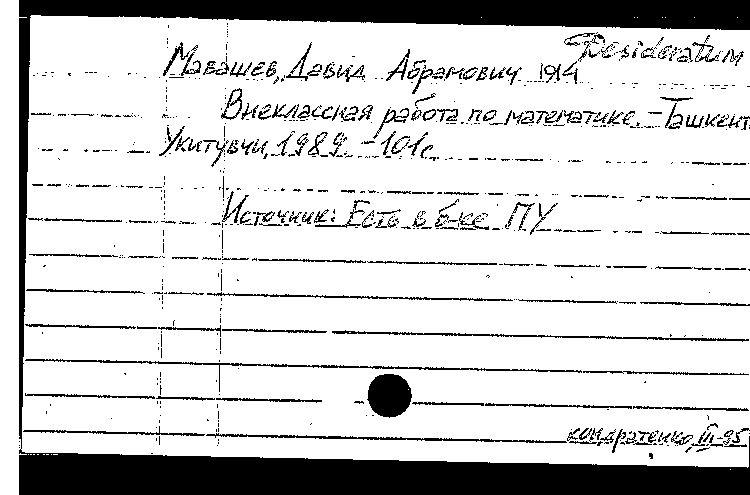 Desideratum
Мавашев, Давид Абрамович 1914
Внеклассная работа по математике. - Ташкент
Укитувчи, 1989. - 101с
Источник: Есть в б-ке ПУ
кондратенко, III-95